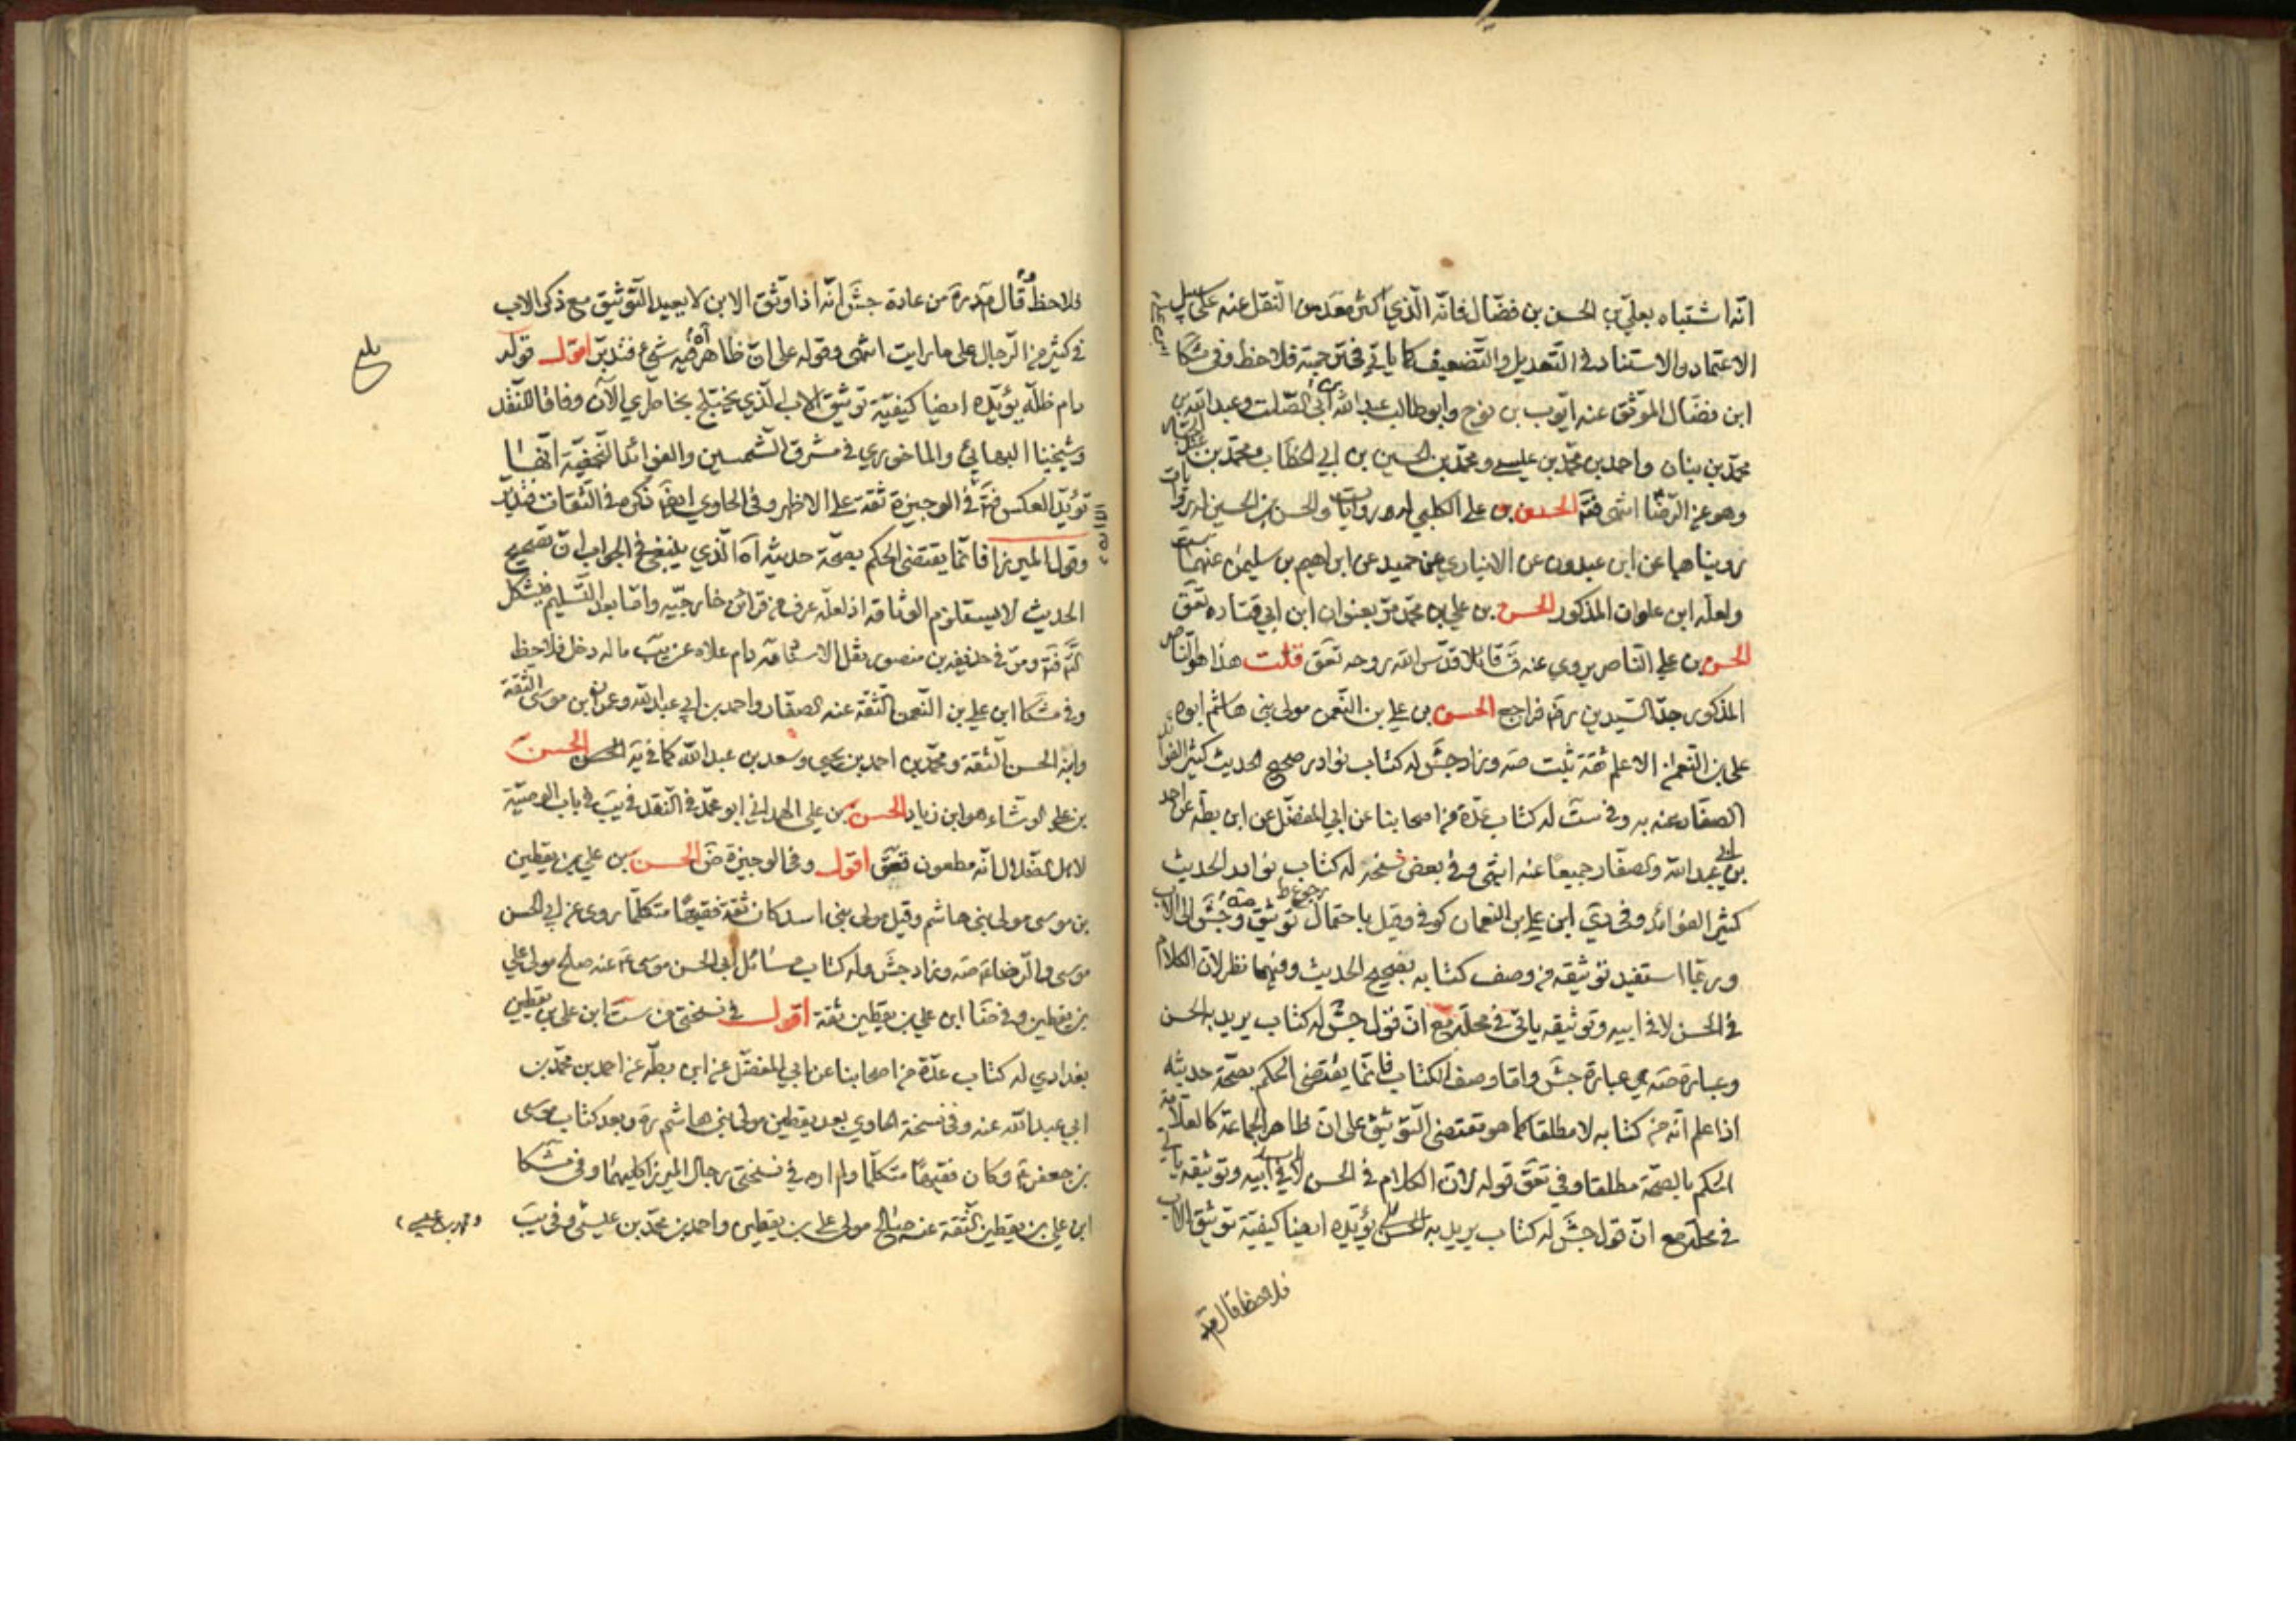 انّه اشتباه بعليّ بن الحسن بن فضّال فانّه الّذي اكثر من النقل عنه على سبيل
الاعتماد والاستناد في التّعديل والتّضعيف كما ياتي في ترجمته فلاحظ وفي مشكا
ابن فضّال الموثّق عنه ايّوب بن نوح وابو طالب عبد الله بن ابي الصّلت وعبد الله بن
محمّد بن بنان واحمد بن محمّد بن عيسى ومحمّد بن الحسين بن ابي الخطّاب ومحمّد بن
وهو عن الرّضا انتهى فتدبّر الحسن بن علي الكلبي له روايات والحسن بن الحسين له روايات
رويناهما عن ابن عبدون عن الانباري عن حميد عن ابراهيم بن سليمن عنهما ست
ولعلّه ابن علوان المذكور الحسن بن علي بن محمّد مرّ بعنوان ابن ابي قتاده تعق
الحسن بن علي النّاصر يروي عنه ق قائلا قدّس الله روحه تعق قلت هذا هو النّاصر
المذكور جدّ السّيدين رضه فراجع الحسن بن علي بن النّعمن مولى بني هاشم ابوه
علي بن النّعمان الاعلم ثقة ثبت صه وزاد جش له كتاب نوادر صحيح الحديث كثير الفوائد
الصفّار عنه به وفي ست له كتاب عدّة من اصحابنا عن ابي المفضّل عن ابن بطّه عن احمد
بن ابي عبد الله والصفّار جميعا عنه انتهى وفي بعض نسخه له كتاب نوادر الحديث
كثير الفوائد وفي دي ابن علي بن النعمان كوفي وقيل باحتمال رجوع توثيق صه وجش الى الاب
وربّما استفيد توثيقه من وصف كتابه بصحيح الحديث وفيهما نظر لانّ الكلام
في الحسن لا في ابيه وتوثيقه ياتي في محلّه مع انّ قول جش له كتاب يريد به الحسن
وعبارة صه هي عبارة جش وامّا وصف الكتاب فانّما يقتضي الحكم بصحّة حديثه
اذا علم انّه من كتابه لا مطلقا كما هو مقتضى التّوثيق على انّ ظاهر الجماعة كالعلّامة
الحكم بالصحّة مطلقا وفي تعق قوله لانّ الكلام في الحسن لا في ابيه وتوثيقه ياتي
في محلّه مع انّ قول جش له كتاب يريد به الحسن يؤيّده ايضا كيفيّة توثيق الاب
فلاحظ قال
فلاحظ قال من عادة جش انّه اذا وثّق الابن لا يعيد التّوثيق مع ذكر الاب
في كثير من الرّجال على ما رايت انتهى وقوله على انّ ظاهر اه فيه شيء فتدبّر اقول قوله
دام ظلّه يؤيّده ايضا كيفيّة توثيق الاب الّذي يختلج بخاطري الآن وفاقا للنّقد
وشيخنا البهائي والماحوزي في مشرق الشّمسين والفوائد النّجفيّة انّها
تؤيّد العكس في الوجيزة ثقة على الاظهر وفي الحاوي ايضا ذكره في الثّقات فتدبّر
وقول الميرزا فانّما يقتضي الحكم بصحّة حديثه اه الّذي ينبغي في الجواب انّ تصحيح
الحديث لا يستلزم الوثاقة اذ لعلّه عرف من قرائن خارجيّه وامّا بعد التّسليم فيشكل
ومرّ في حذيفه بن منصور نقل الاستاد دام علاه عن يب ما له دخل فلاحظ
وفي مشكا ابن علي بن النّعمن الثّقة عنه الصفّار واحمد بن ابي عبد الله وعمران بن موسى الثّقة
وابنه الحسن الثّقة ومحمّد بن احمد بن يحيى وسعد بن عبد الله كما في يه الحسن
بن علي الوشّاء هو ابن زياد الحسن بن علي الهمداني ابو محمّد في النقد في يب في باب الوصيّة
لاهل الضّلال انّه مطعون تعق اقول وفي الوجيزة ض الحسن بن علي بن يقطين
بن موسى مولى بني هاشم وقيل مولى بني اسد كان ثقة فقيها متكلّما روى عن ابي الحسن
موسى والرّضا ع صه وزاد جش وله كتاب مسائل ابي الحسن موسى ع عنه صالح مولى علي
بن يقطين وفي ضا ابن علي بن يقطين ثقة اقول في نسختي من ست ابن علي بن يقطين
بغدادي له كتاب عدّة من اصحابنا عن ابي المفضّل عن ابن بطّه عن احمد بن محمّد بن
ابي عبد الله عنه وفي نسخة الحاوي بعد يقطين مولى بني هاشم ره وبعد كتاب موسى
بن جعفر ع وكان فقيها متكلّما ولم اره في نسختي رجال الميرزا كليهما وفي مشكا
ابن علي بن يقطين الثّقة عنه صالح مولى علي بن يقطين واحمد بن محمّد بن عيسى وفي يب
بلغ